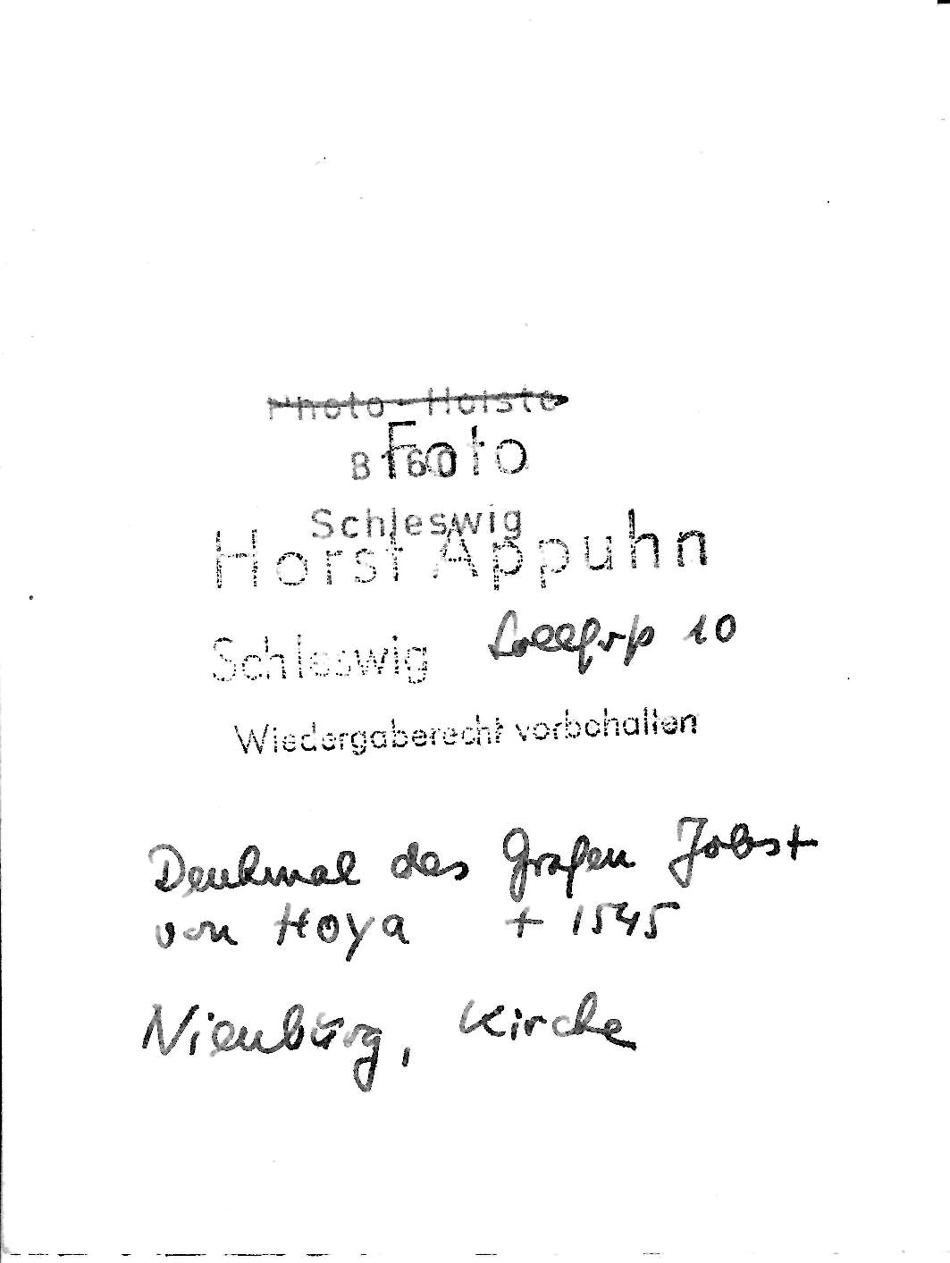 Photo-Holste
B 160
Foto
Schleswig
Horst Appuhn
Schleswig 10
Wiedergaberecht vorbehalten
Denkmal des Grafen Jobst
von Hoya + 1545
Nienburg, Kirche